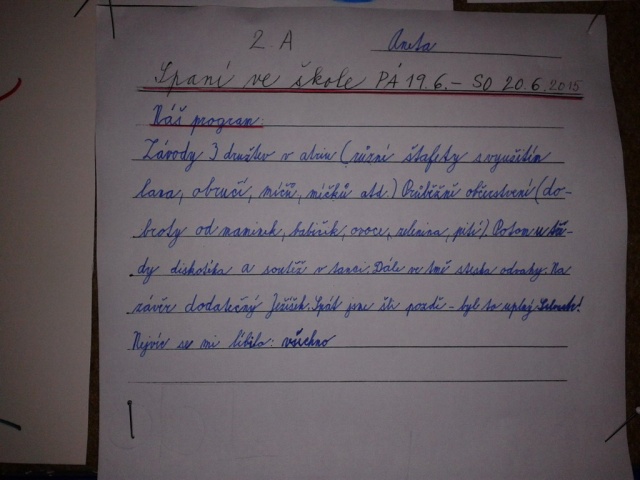 2. A Aneta
Spaní ve škole PÁ 19.6. – SO 20.6.2015
Náš program:
Závody 3 družstev v atriu (různí štafety s využitím
lana, obručí, míčů, míčků atd.) Průběžně občerstvení (do-
broty od maminek, babiček, ovoce, zelenina, pití). Potom u tří-
dy diskotéka a soutěž v tanci. Dále ve tmě stezka odvahy. Na
závěr dodatečný Ježíšek. Spát jsme šli pozdě – byl to úplný
Nejvíc se mi líbilo: všechno